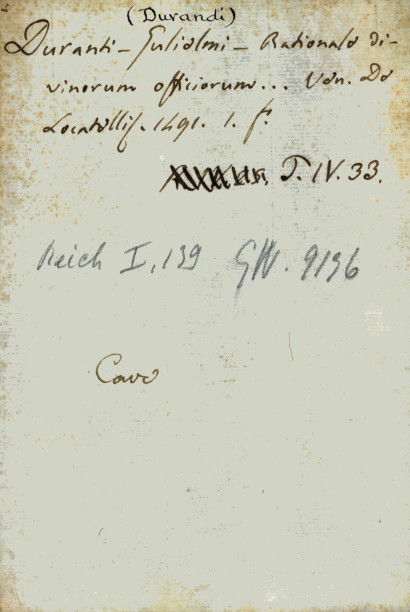 (Durandi)
Duranti - Gulielmi - Rationale di-
vinorum officiorum... Ven. De
Locatellis. 1491. 1. f.
T. IV. 33.
Reich I, 139 GW. 9136
Cavo